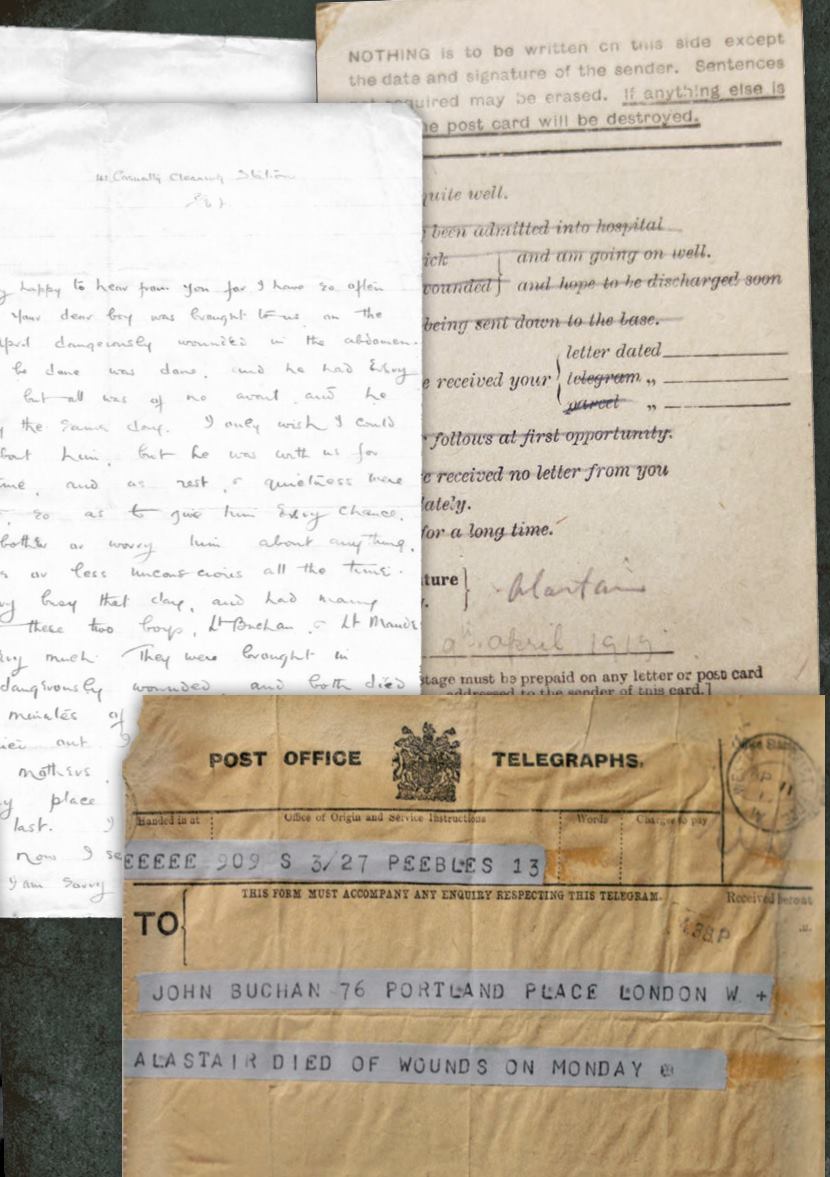 NOTHING is to be written on this side except
the date and signature of the sender. Sentences
not required may be erased. If anything else is
the post card will be destroyed.
quite well.
been admitted into hospital
sick
and am going on well.
wounded
and hope to be discharged soon
being sent down to the base.
letter dated
received your
telegram „
parcel „
follows at first opportunity.
received no letter from you
lately.
for a long time.
Alastair
April
stage must be prepaid on any letter or post card
addressed to the sender of this card.]
Casualty Clearing Station
happy to hear from you for I have so often
Your dear boy was brought to us on the
April dangerously wounded in the abdomen.
be done was done, and he had every
but all was of no avail and he
the same day. I only wish I could
about him, but he was with us for
time, and as rest & quietness were
so as to give him every chance.
bother or worry him about anything.
or less unconscious all the time.
busy that day, and had many
these two boys, Lt Buchan & Lt Maude
very much. They were brought in
dangerously wounded and both died
minutes of
out
mothers
place
last. I
now I
I am sorry
POST OFFICE TELEGRAPHS.
Handed in at
Office of Origin and Service Instructions
Words
Charges to pay
EEEEE 909 S 3/27 PEEBLES 13
THIS FORM MUST ACCOMPANY ANY ENQUIRY RESPECTING THIS TELEGRAM.
Received here at
TO
4.38P
JOHN BUCHAN 76 PORTLAND PLACE LONDON W +
ALASTAIR DIED OF WOUNDS ON MONDAY